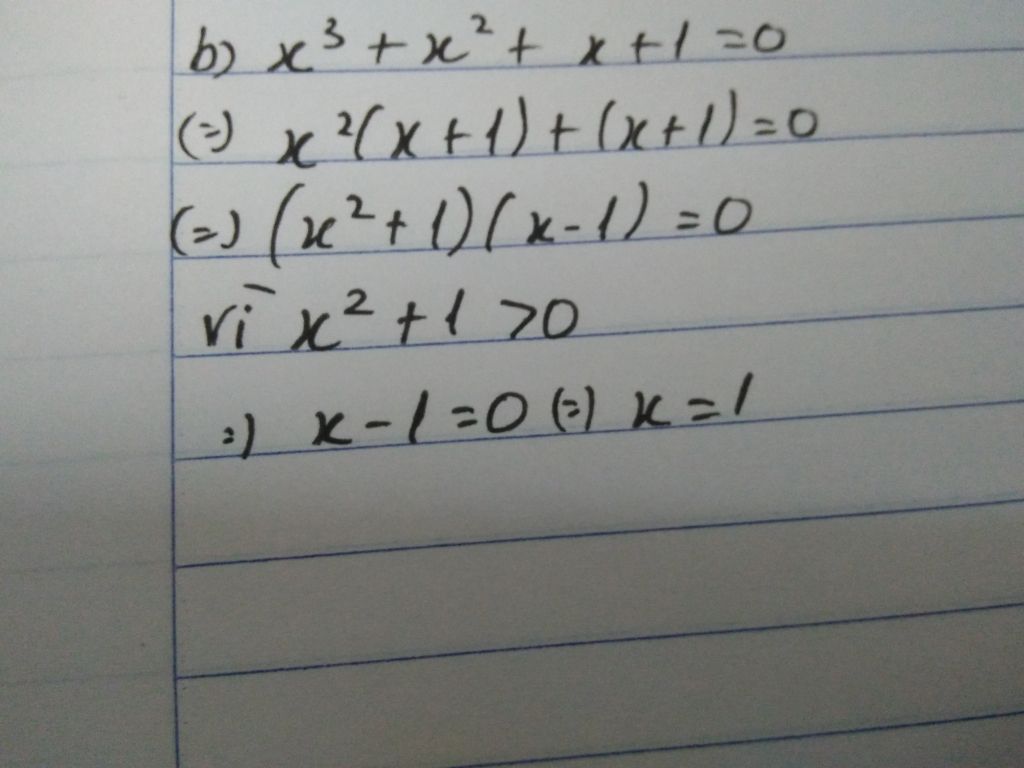 b) x³ + x² + x + 1 = 0
(=) x²(x + 1) + (x + 1) = 0
(=) (x² + 1)(x - 1) = 0
vì x² + 1 > 0
=) x - 1 = 0 (=) x = 1